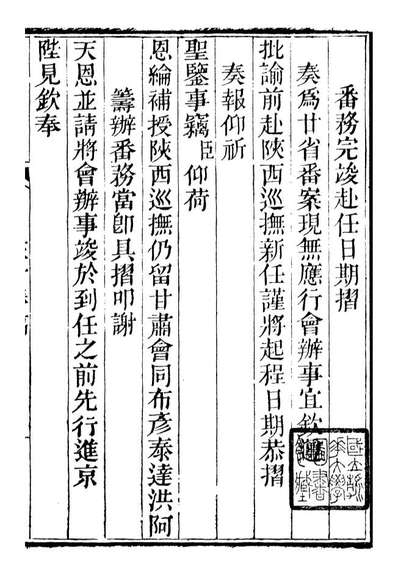 番務完竣赴任日期摺
奏爲甘省番案現無應行會辦事宜欽遵
批諭前赴陝西巡撫新任謹將起程日期恭摺
奏報仰祈
聖鑒事竊臣仰荷
恩綸補授陝西巡撫仍留甘肅會同布彥泰達洪阿
籌辦番務當卽具摺叩謝
天恩並請將會辦事竣於到任之前先行進京
陛見欽奉